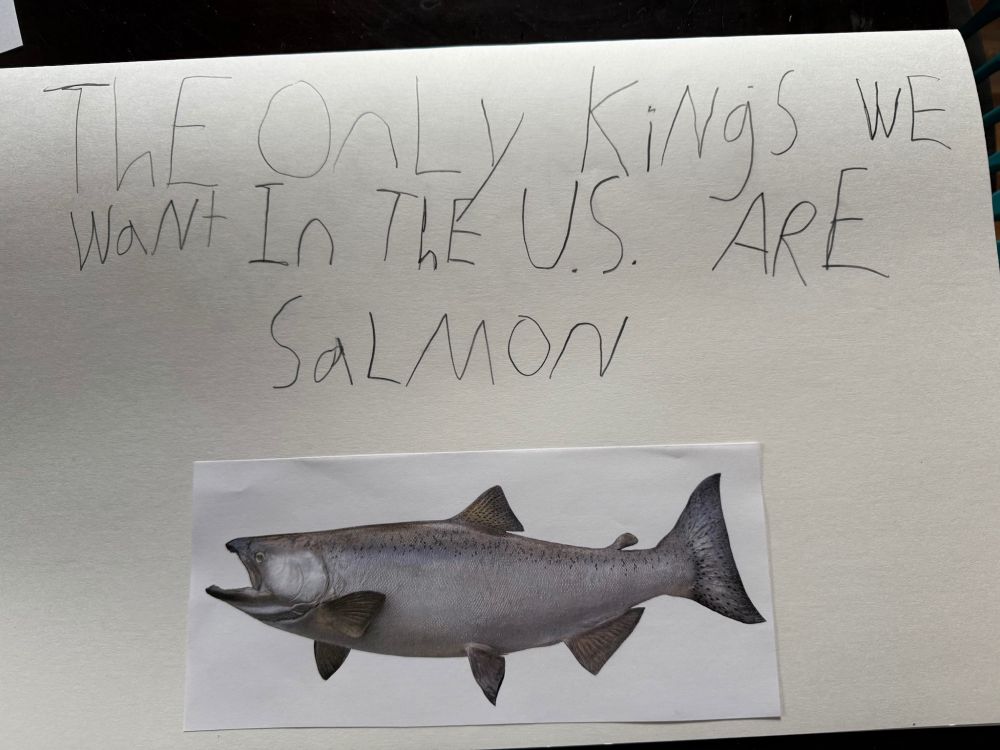 ThE OnLy KiNgS WE
WaNt In ThE U.S. ARE
SaLMON